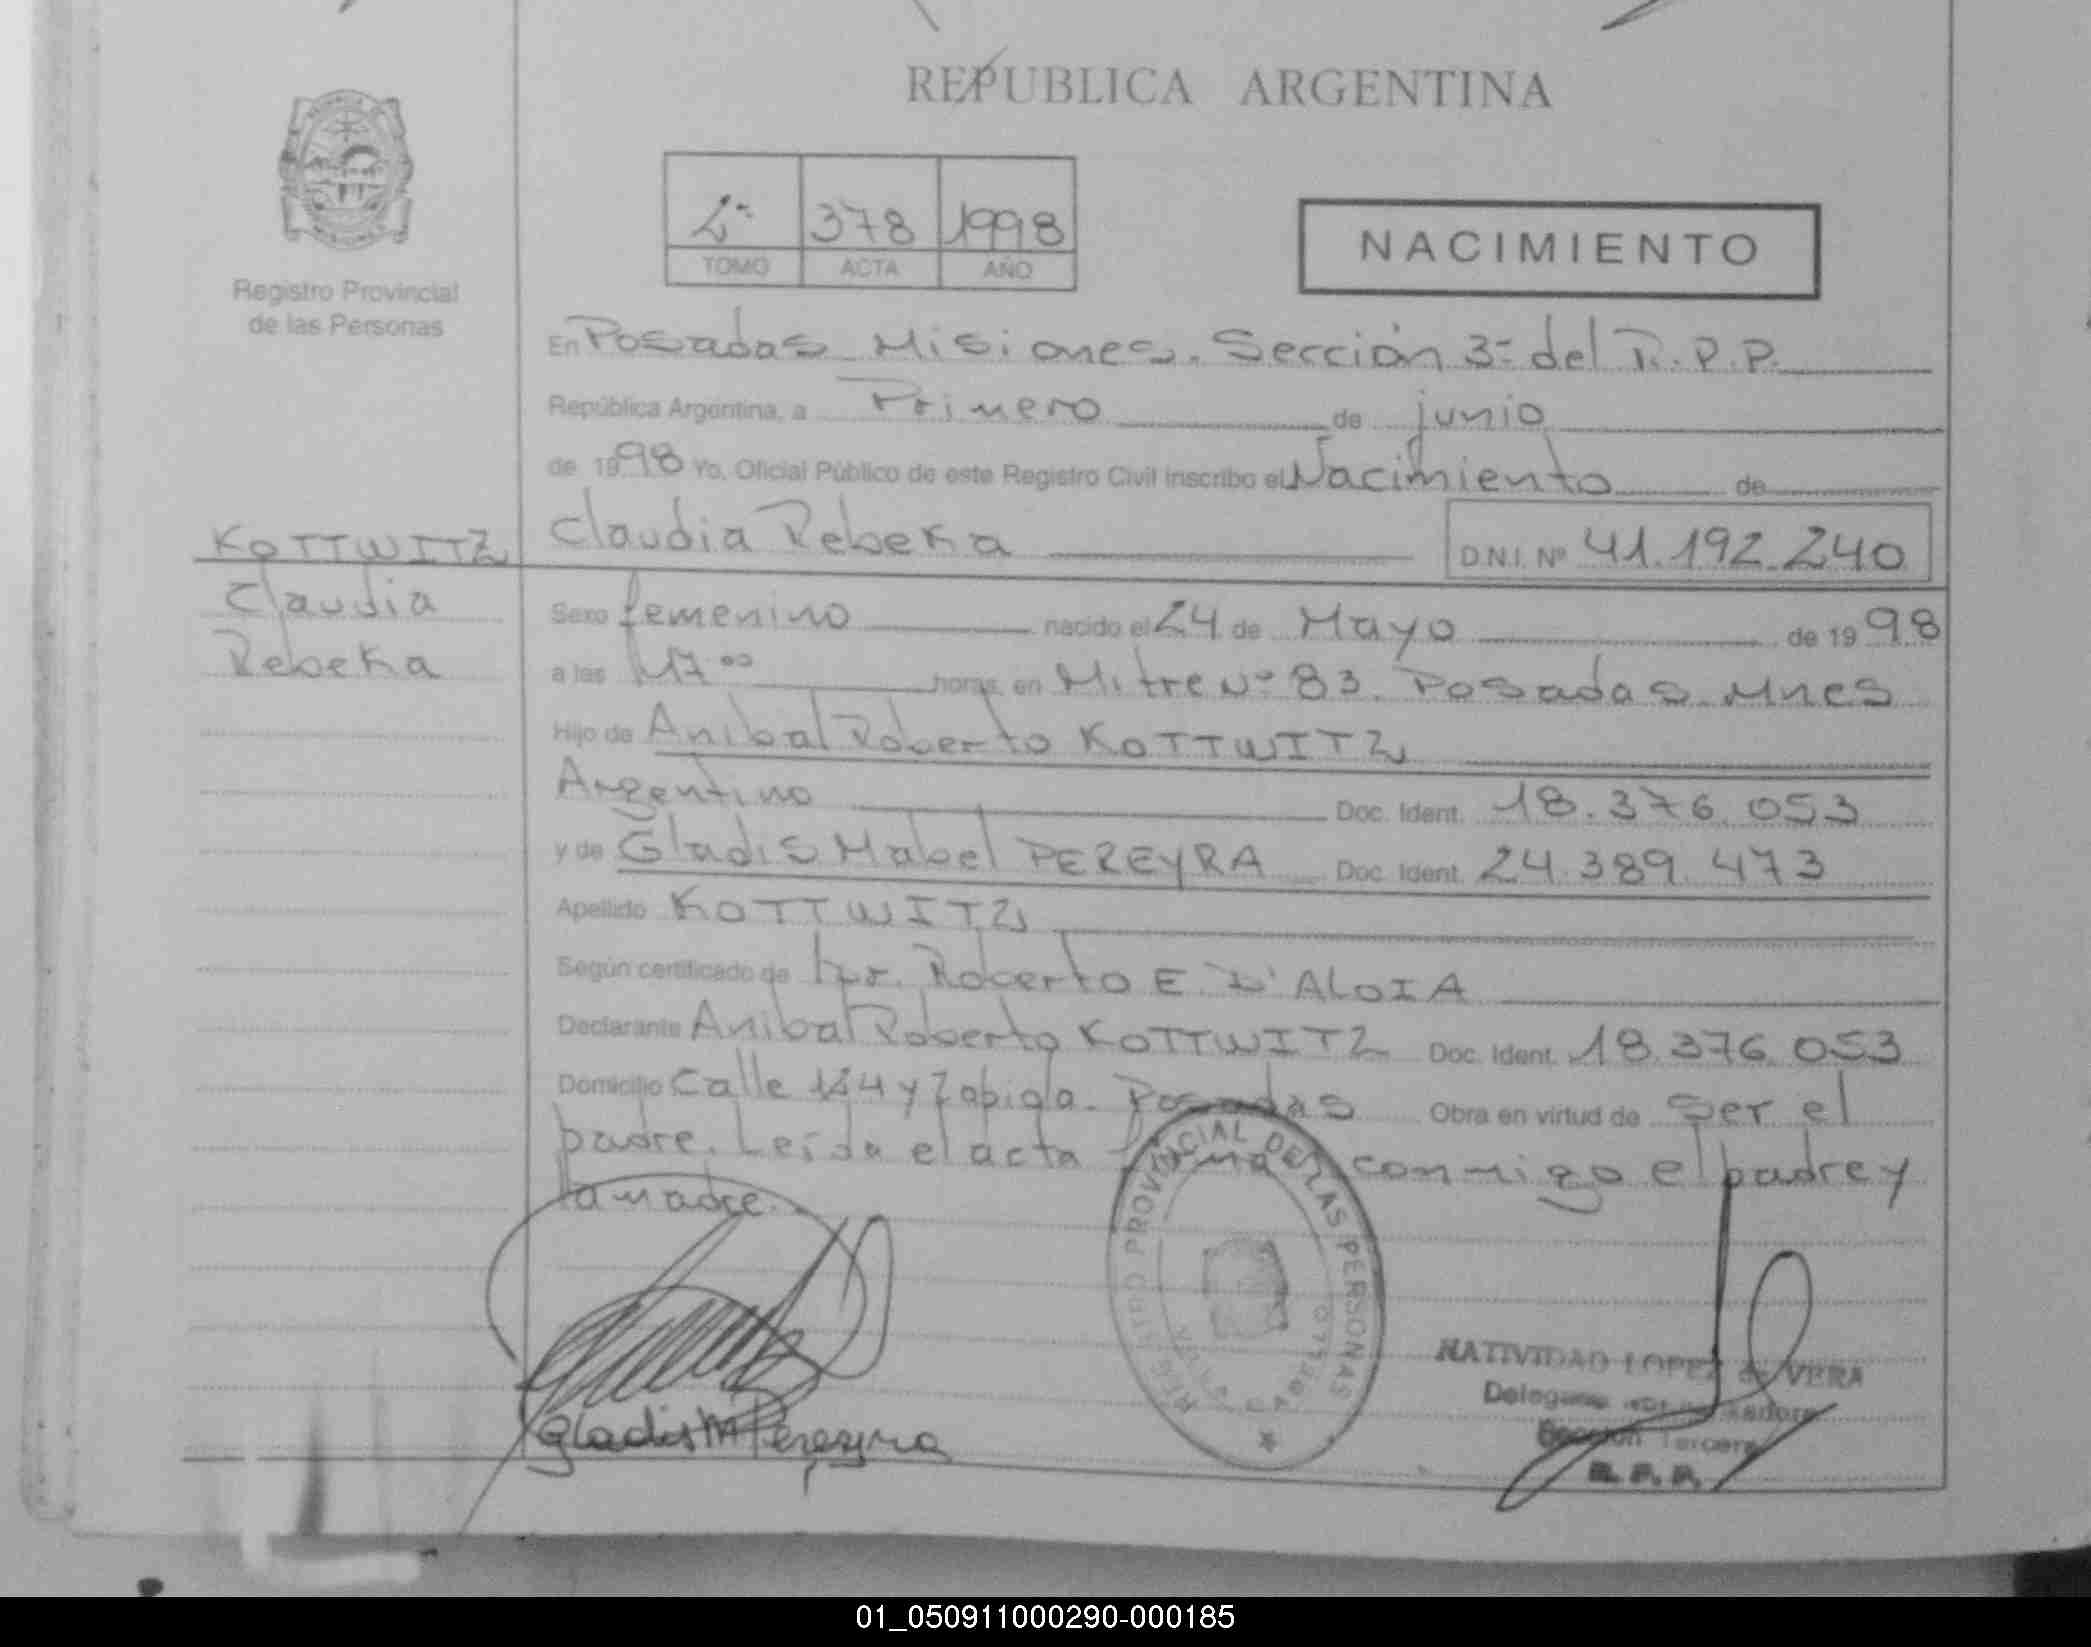 REPUBLICA ARGENTINA
2º 378 1998
TOMO ACTA AÑO
NACIMIENTO
Registro Provincial
de las Personas
En Posadas Misiones. Sección 3º del R.P.P.
República Argentina, a Primero de junio
de 1998 Yo, Oficial Público de este Registro Civil inscribo el Nacimiento de
Claudia Rebeka D.N.I. Nº 41.192.240
KOTTWITZ
Claudia
Rebeka
Sexo femenino nacido el 24 de Mayo de 1998
a las 17⁰⁰ horas, en Mitre Nº 83. Posadas. Mnes
Hijo de Anibal Roberto KOTTWITZ
Argentino Doc. Ident. 18.376.053
y de Gladis Mabel PEREYRA Doc. Ident. 24.389.473
Apellido KOTTWITZ
Según certificado de Roberto E. D'ALOIA
Declarante Anibal Roberto KOTTWITZ Doc. Ident. 18.376.053
Domicilio Calle y Posadas Obra en virtud de ser el
padre. Leída el acta conmigo el padre y
la madre.
REGISTRO PROVINCIAL DE LAS PERSONAS
Gladis M Pereyra
NATIVIDAD LOPEZ de VERA
Sección Tercera
R. P. P.
01_050911000290-000185